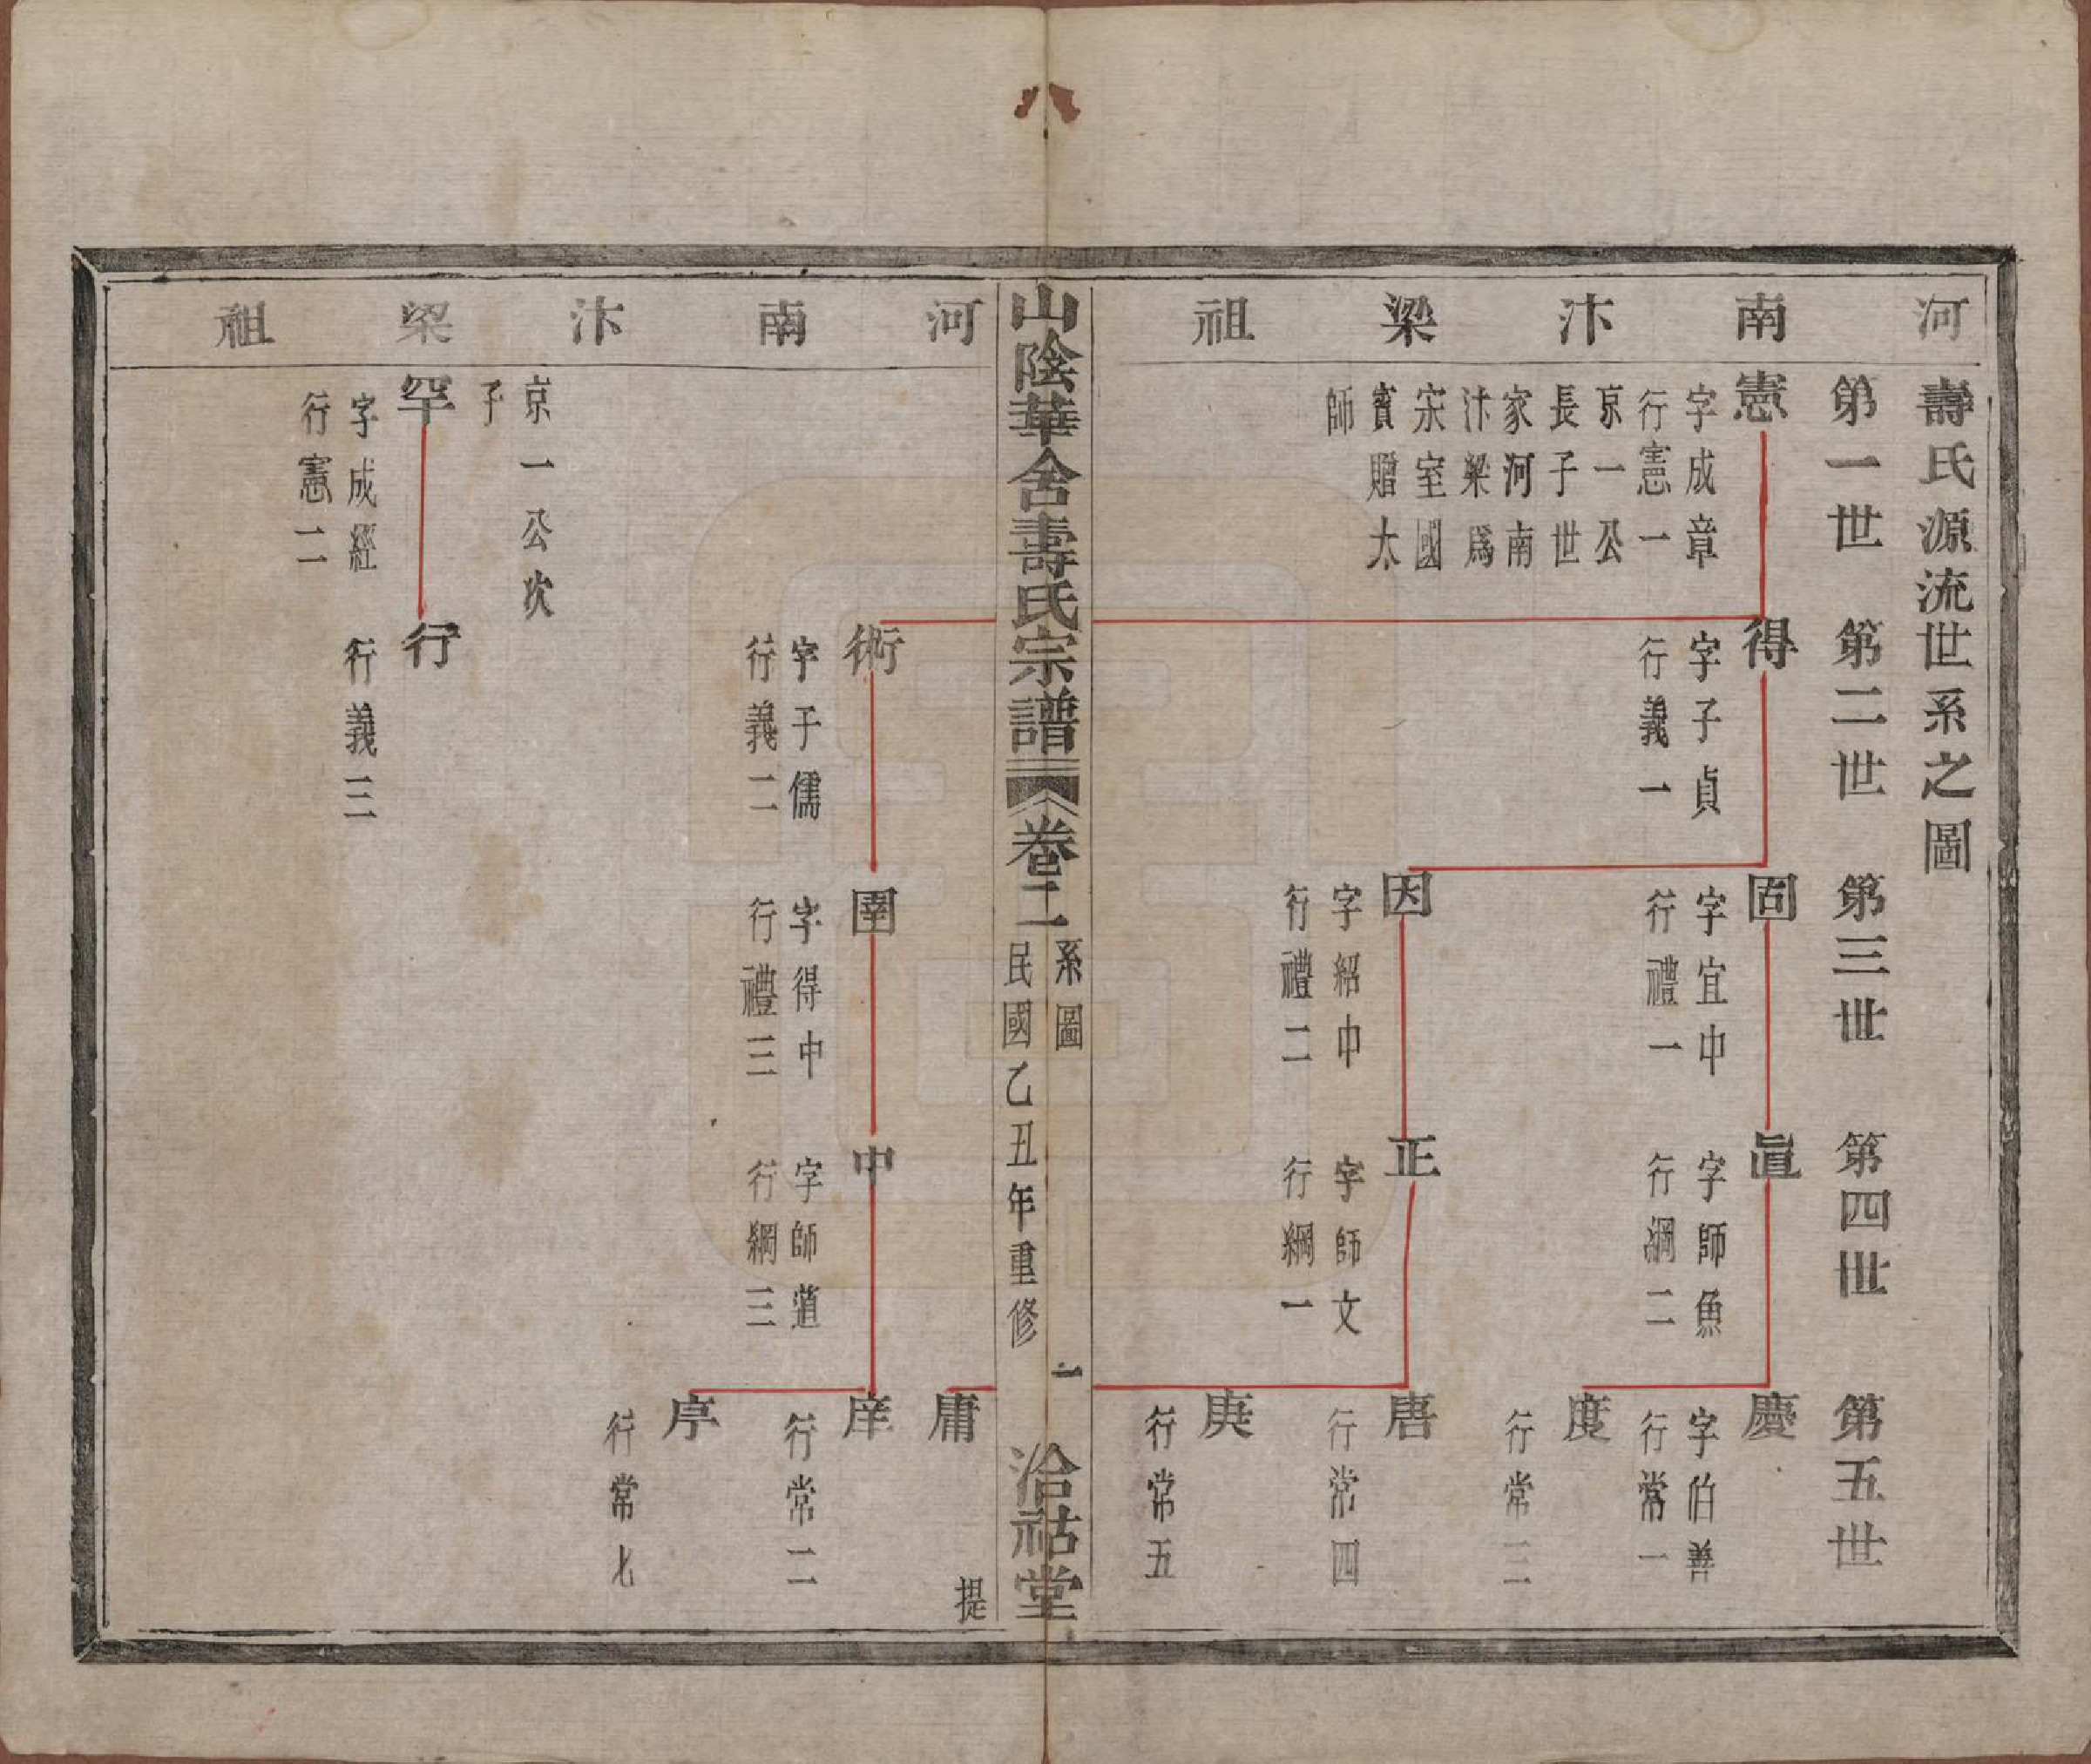 河南汴梁祖
壽氏源流世系之圖
第一世
第二世
第三世
第四世
第五世
憲
字成章
行憲一
京一公
長子世
家河南
汴梁爲
宋室國
賓贈太
師
得
字子貞
行義一
固
字宜中
行禮一
因
字紹中
行禮二
眞
字師魚
行綱二
正
字師文
行綱一
慶
字伯善
行常一
度
行常三
唐
行常四
庚
行常五
山陰華舍壽氏宗譜
卷二
系圖
民國乙丑年重修
一
洽祜堂
河南汴梁祖
術
字子儒
行義二
圉
字得中
行禮三
中
字師道
行綱三
庸
提
庠
行常二
序
行常七
京一公次
子
罕
字成經
行憲二
行
行義三